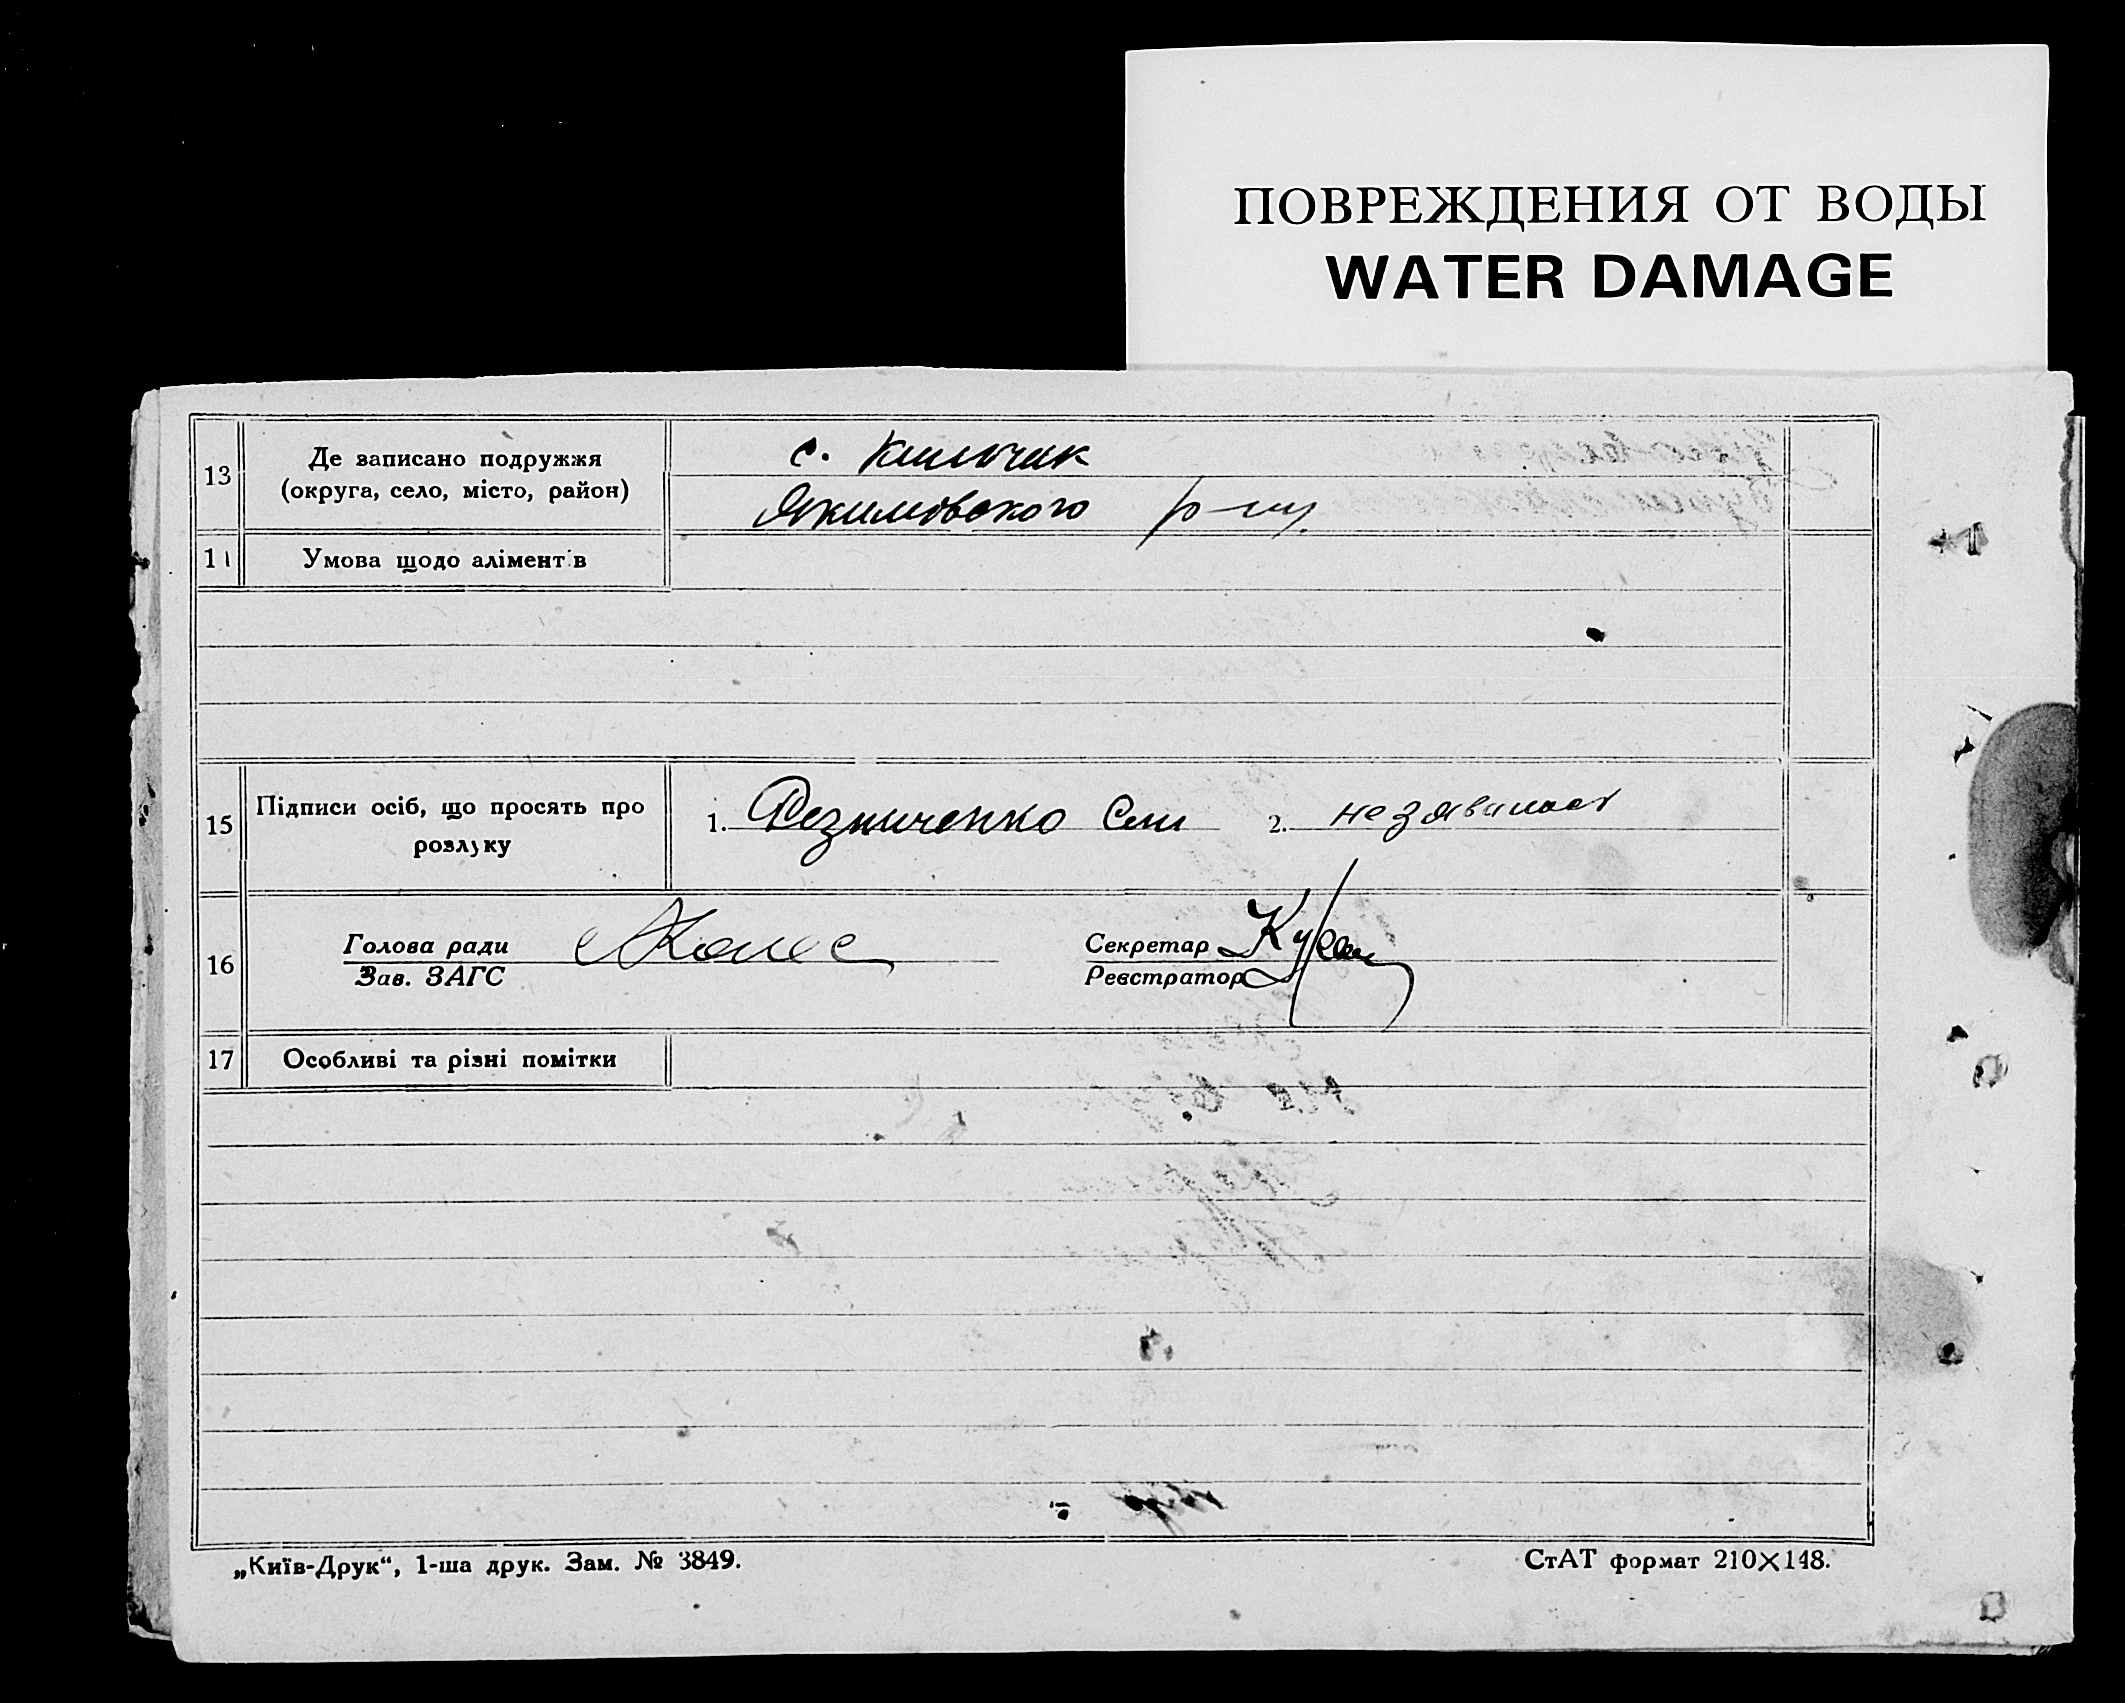 ПОВРЕЖДЕНИЯ ОТ ВОДЫ
WATER DAMAGE
13
Де записано подружжя
(округа, село, місто, район)
с. Кильчик
Якимовского р-ну
Умова щодо аліментів
15
Підписи осіб, що просять про
розлуку
1. Резниченко 2. не зявилась
16
Голова ради
Зав. ЗАГС
Секретар
Реєстратор
17
Особливі та різні помітки
„Київ-Друк“, 1-ша друк. Зам. № 3849.
СтАТ формат 210×148.